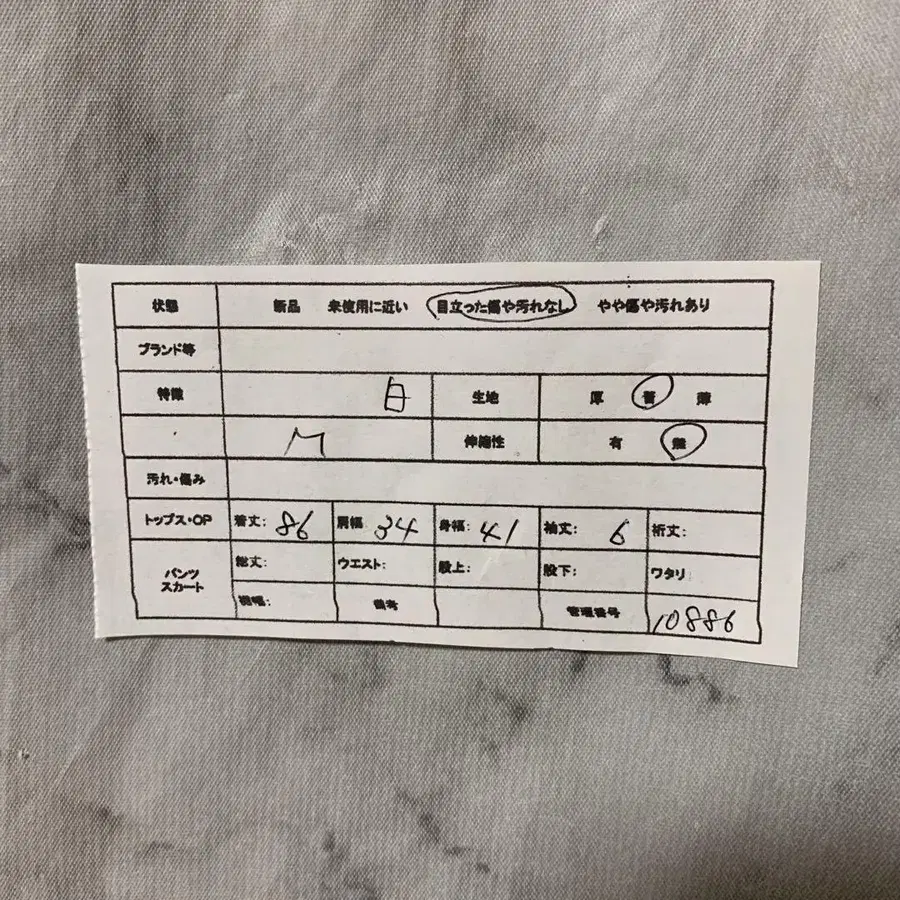 状態 新品 未使用に近い 目立った傷や汚れなし やや傷や汚れあり
ブランド等
特徴 白 生地 厚 普 薄
M 伸縮性 有 無
汚れ・傷み
トップス・OP 着丈: 86 肩幅 34 身幅: 41 袖丈: 6 裄丈:
パンツ スカート 総丈: ウエスト: 股上: 股下: ワタリ
裾幅: 備考 管理番号 10886